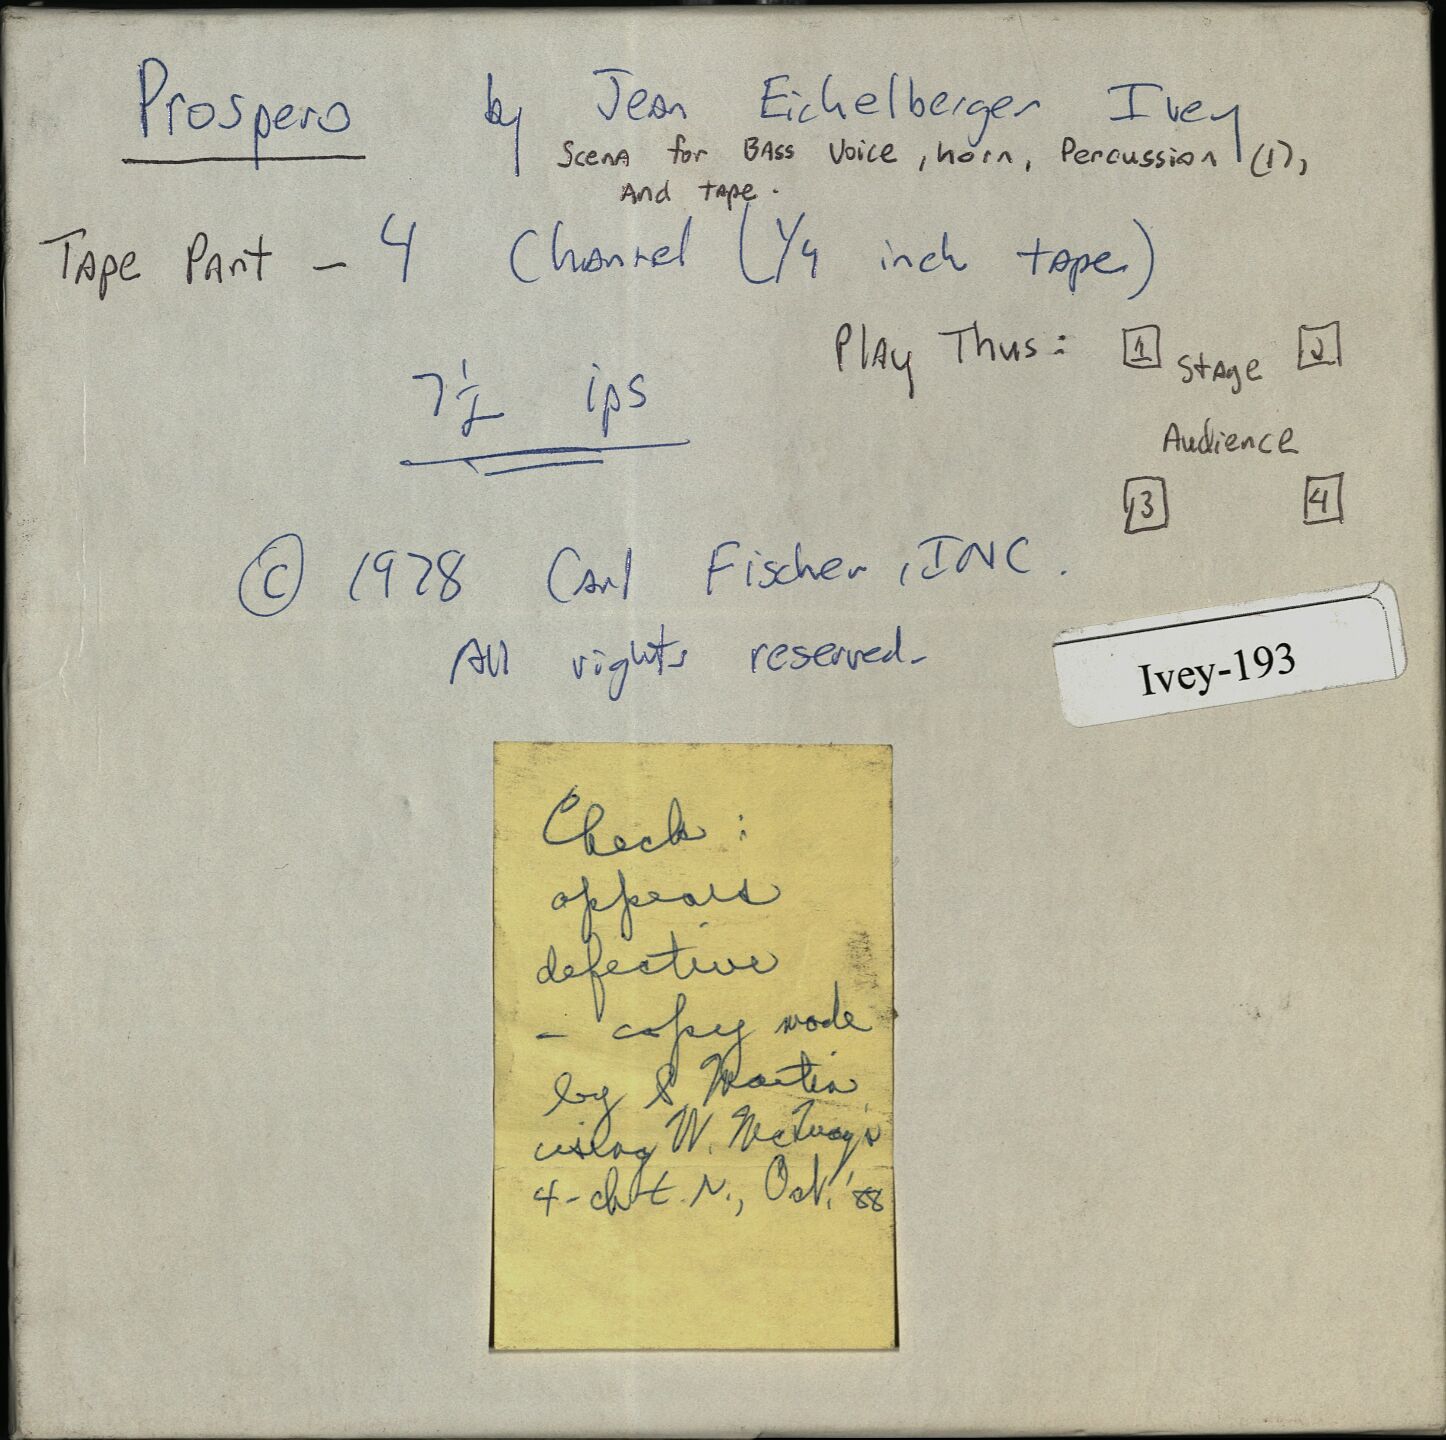 Prospero by Jean Eichelberger Ivey
Scena for Bass Voice, horn, Percussion (1),
And tape.
Tape Part - 4 Channel (1/4 inch tape)
Play Thus: 1 Stage 2
7 1/2 ips
Audience
3 4
© 1978 Carl Fischer, INC.
All rights reserved.
Ivey-193
Check:
appears
defective
- copy made
by S Martin
using W.
4-ch t.r., Oct. '88